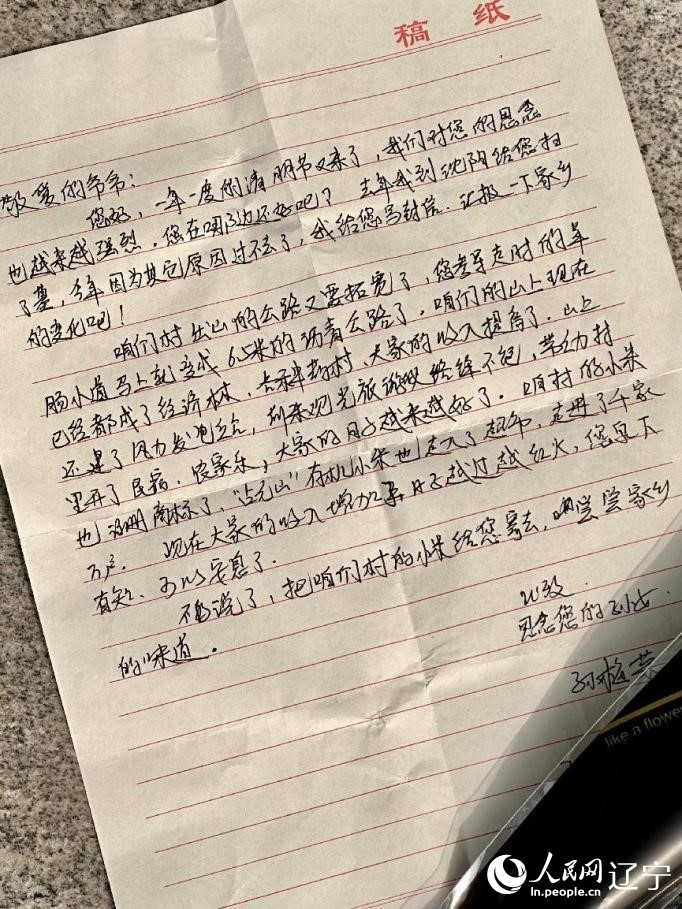 稿 纸
敬爱的爷爷：
您好，一年一度的清明节又来了，我们对您的思念
也越来越强烈，您在那边还好吧？去年我到沈阳给您扫
了墓，今年因为其它原因过不去了，我给您写封信，汇报一下家乡
的变化吧！
咱们村出山的公路又要拓宽了，您当年走时的羊
肠小道马上就变成6.5米的沥青公路了，咱们的山上现在
已经都成了经济林，大家的收入提高了．山上
还建了风力发电站，到来观光旅游的络绎不绝，带动村
里开了民宿、农家乐，大家的日子越来越好了．咱村的小米
也注册商标了，有机小米也走入了超市，走进了千家
万户．现在大家的收入增加了，日子越过越红火，您泉下
有知、可以安息了．
不多说了，把咱们村的小米给您寄去，尝尝家乡
的味道．
此致
思念您的
孙
like a flower
人民网 辽宁
ln.people.cn